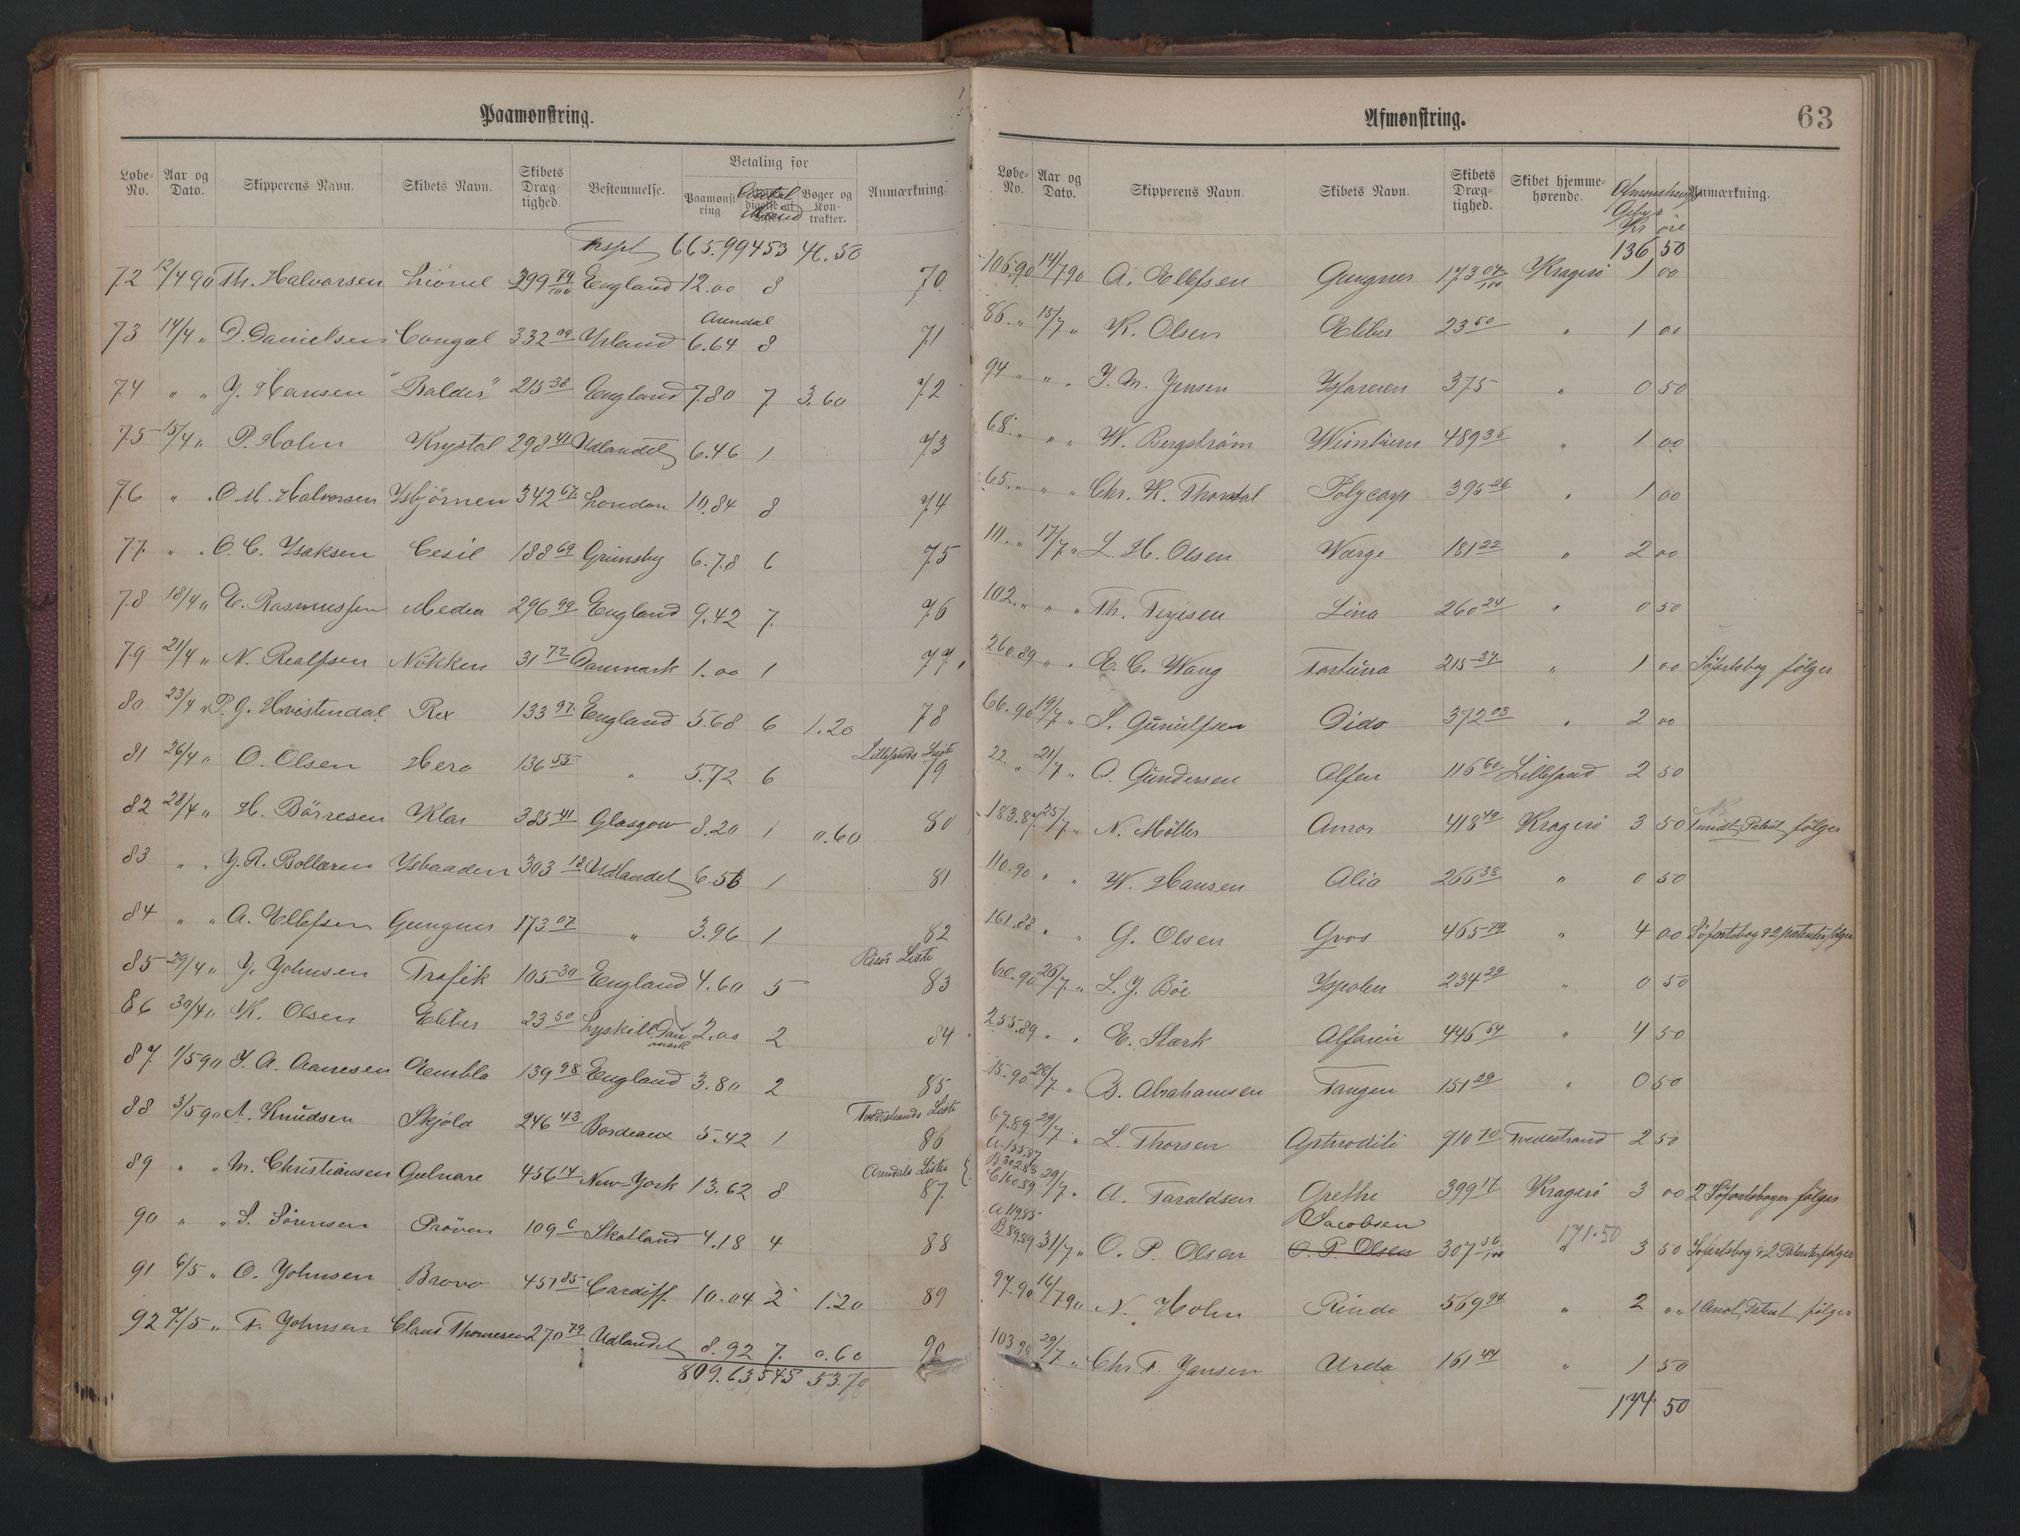 Paamonstring.
Løbe-No. Aar og Dato. Skipperens Navn. Skibets Navn. Skibets Dræg-tighed. Bestemmelse. Betaling for Paamonst-ring. Antal Mand Bøger og Kon-trakter. Anmærkning.
Trspt 665.99 453 46.50
72 12/4 90 Th. Halvorsen Lionel 399 79/100 England 12.00 8 70
Arendal
73 14/4 " D. Danielsen Congal 332 09 Irland 6.64 8 71
74 " " J. Hansen "Balder" 215 38 England 7.80 7 3.60 72
75 15/4 " P. Holm Krystal 298 41 Udlandet 6.46 1 73
76 " " O. M. Halvorsen Isbjørnen 342 67 London 10.84 8 74
77 " " O. C. Isaksen Cesil 188 69 Grimsby 6.78 6 75
78 18/4 " E. Rasmussen Medea 296 99 England 9.42 7 76
79 21/4 " N. Realfsen Nökken 31 72 Danmark 1.00 1 77
80 23/4 " P. G. Hvistendal Rex 133 97 England 5.68 6 1.20 78
Lillesands Liste
81 26/4 " O. Olsen Hero 136 55 " 5.72 6 79
82 28/4 " H. Börresen Klar 385 41 Glasgow 8.20 1 0.60 80
83 " " J. R. Bollæren Isbaaden 303 18 Udlandet 6.56 1 81
84 " " A. Ellefsen Gungner 173 07 " 3.96 1 82
Risør Liste
85 29/4 " J. Johnsen Trafik 105 30 England 4.60 5 83
86 30/4 " K. Olsen Ebber 23 50 Lyskill Danmark 2.00 2 84
87 1/5 90 T. A. Aanesen Embla 139 98 England 3.80 2 85
Tvedestrands Liste
88 3/5 90 A. Knudsen Skjold 246 43 Bordeaux 5.42 1 86
Arendals Liste
89 " " M. Christiansen Gulnare 456 14 New-York 13.62 8 87
90 " " S. Sörensen Pröven 109 6 Skotland 4.18 4 88
91 6/5 " O. Johnsen Bravo 451 85 Cardiff 10.04 2 1.20 89
92 7/5 " F. Johnsen Claus Thomesen 270 79 Udlandet 8.92 7 0.60 90
809.63 545 53.70
Afmonstring. 63
Løbe-No. Aar og Dato. Skipperens Navn. Skibets Navn. Skibets Dræg-tighed. Skibet hjemme-hørende. Afmønstrings Gebyr Kr öre Anmærkning.
136 50
106.90 14/7 90 A. Ellefsen Gungner 173 07/100 Kragerö 1 00
86 " 15/7 " K. Olsen Ebber 23 50 " 1 00
94 " " " J. M. Jensen Isfareren 375 " 0 50
68 " " " W. Bergström 489 36 " 1 00
65 " " " Chr. K. Thorsdal Polycarp 395 26 " 1 00
111 " 17/7 " L. H. Olsen Warge 181 22 " 2 00
102 " " " Th. Terjesen Lina 260 24 " 0 50
260.89 " " E. C. Wang Fortuna 215 37 " 1 00 Søfartsbog følger
66.90 19/7 " S. Gunulfsen Dido 372 03 " 2 00
22 " 21/7 " O. Gundersen Alfen 116 60 Lillesand 2 50
183.87 25/7 " N. Möller Amor 418 49 Kragerö 3 50 1 midt. Patent følger
110.90 " " W. Hansen Alia 266 38 " 0 50
161.88 " " G. Olsen Gros 465 79 " 4 00 Søfartsbog & 2 patenter følger
60.90 26/7 " L. J. Böe Ispolen 234 29 " 0 50
255.89 " " E. Stærk Alfarin 446 64 " 4 50
15.90 28/7 " B. Abrahamsen Tangen 151 29 " 0 50
67.89 29/7 " L. Thorsen Aphroditi 710 70 Tvedestrand 2 50
A 155.87
B 302.88
C 160.89 29/7 " A. Taraldsen Grethe 399 17 Kragerö 3 00 2 Søfartsbøger følger
A 119.85 Jacobsen 171.50
B 89.89 31/7 " O. P. Olsen O. P. Olsen 307 56/100 " 3 50 Søfartsbog & 2 Patenter følger
97.90 16/7 90 N. Holm Rinda 569 94 " 2 " 1 Amot. Patent følger
103.90 29/7 " Chr. F. Jansen Urda 161 44 " 1 50
174 50